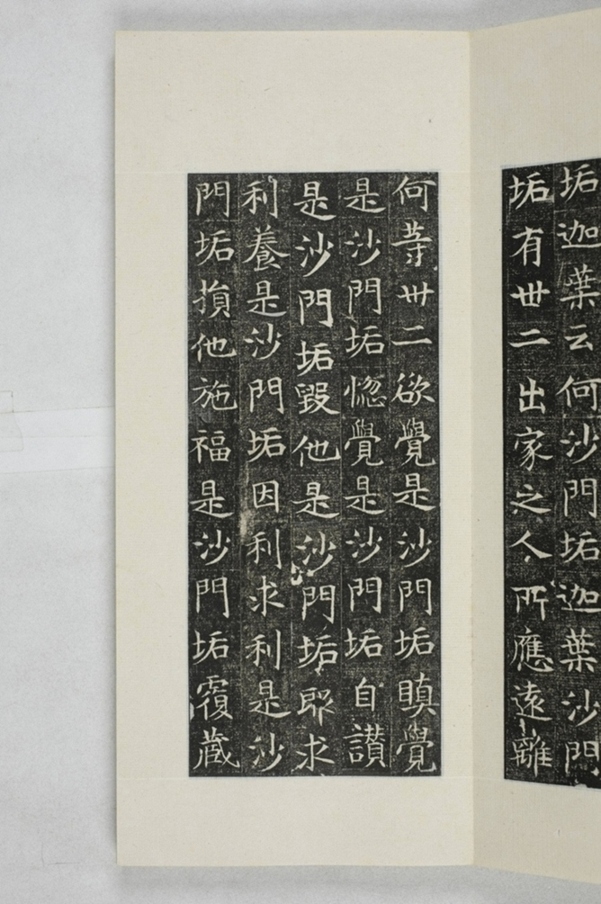 垢迦葉云何沙門垢迦葉沙門
垢有丗二出家之人所應遠離
何等卅二欲覺是沙門垢瞋覺
是沙門垢惱覺是沙門垢自讃
是沙門垢毀他是沙門垢耶求
利養是沙門垢因利求利是沙
門垢損他施福是沙門垢覆藏